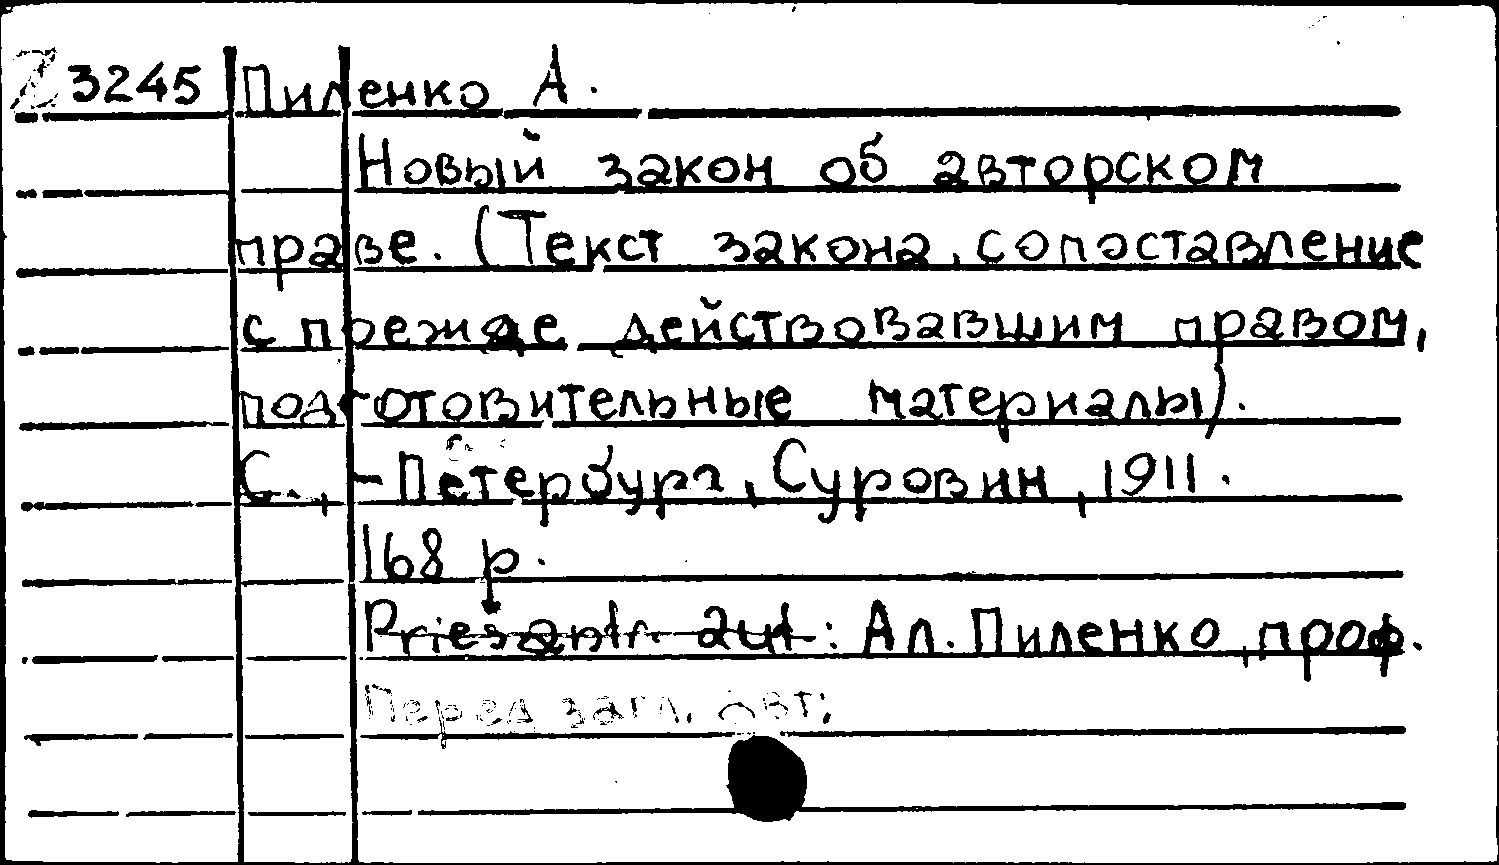 Z 3245 Пиленко А.
Новый закон об авторском
праве. (Текст закона, сопоставление
с прежде действовавшим правом,
подготовительные материалы).
С.,-Петербург, Суровин, 1911.
168 p.
Priešantr. aut.: Ал. Пиленко, проф.
Перед загл. авт: